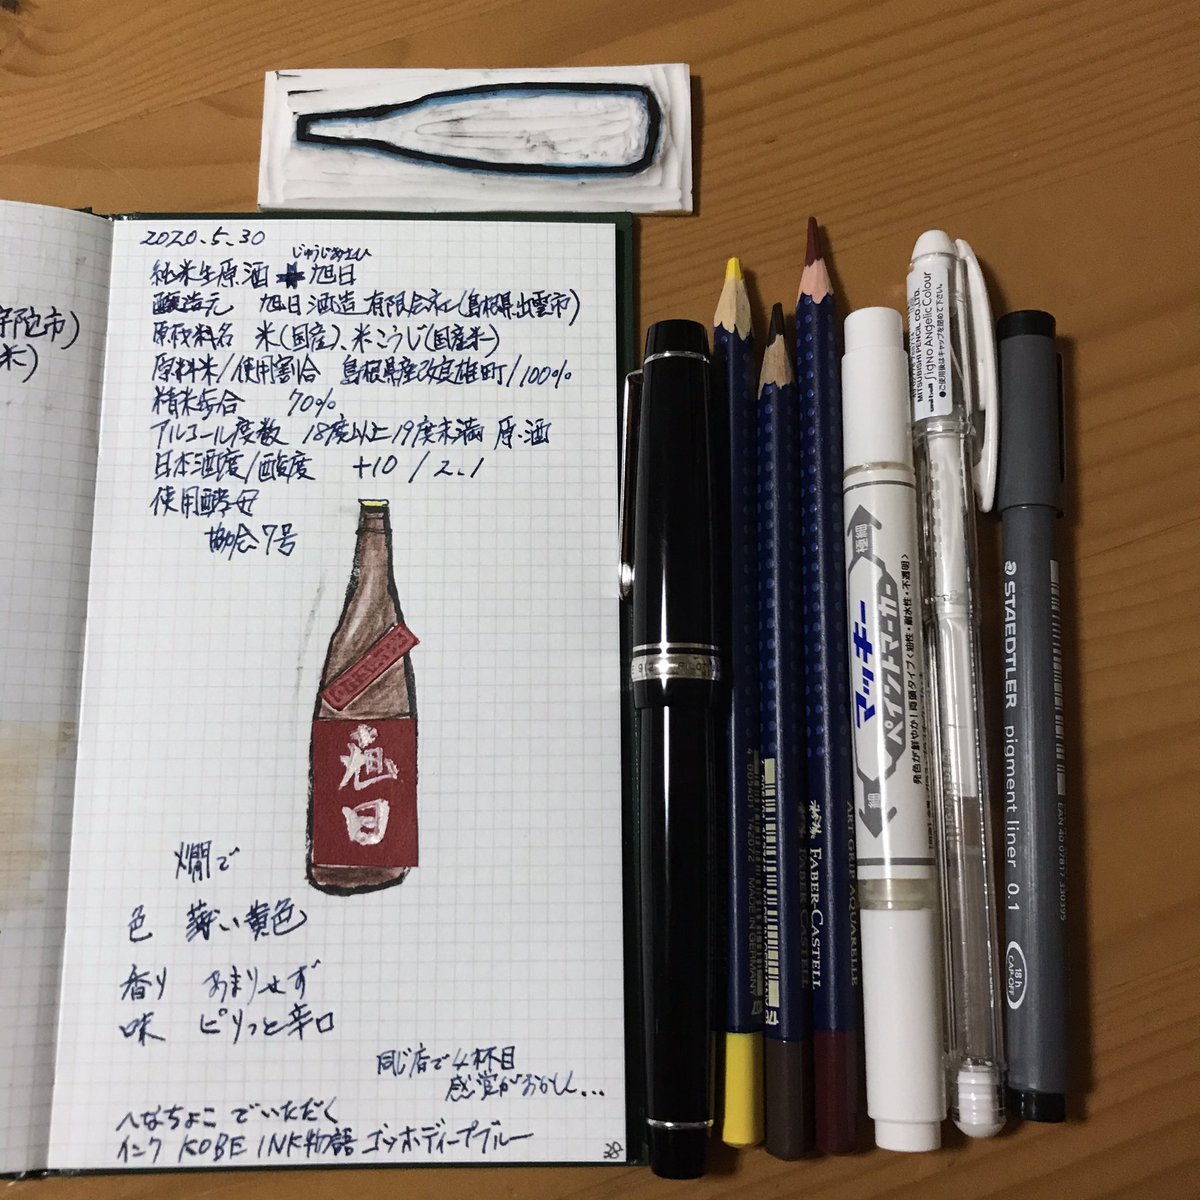 2020.5.30
じゅうじあさひ
純米生原酒 十 旭日
醸造元 旭日酒造有限会社(島根県出雲市)
原材料名 米(国産)、米こうじ(国産米)
原料米/使用割合 島根県産改良雄町/100%
精米歩合 70%
アルコール度数 18度以上19度未満 原酒
日本酒度/酸度 +10/2.1
使用酵母
協会7号
旭日
燗で
色 薄い黄色
香り あまりせず
味 ピリっと辛口
同じ店で4杯目
感覚がおかしい…
へなちょこでいただく
インク KOBE INK物語 ゴッホディープブルー
38
宇陀市)
米)
FABER-CASTELL
ART GRIP AQUARELLE
FABER-CASTELL
MADE IN GERMANY
4 005401 142072
極細
マッキー
ペイントマーカー
細
発色が鮮やか!両頭タイプ<油性・耐水性・不透明>
MITSUBISHI PENCIL CO.,LTD.
uni-ball Signo Angelic Colour
●ご使用後はキャップを閉めて下さい。
STAEDTLER pigment liner 0.1
EAN 40 07817 330395
18h
CAP-OFF